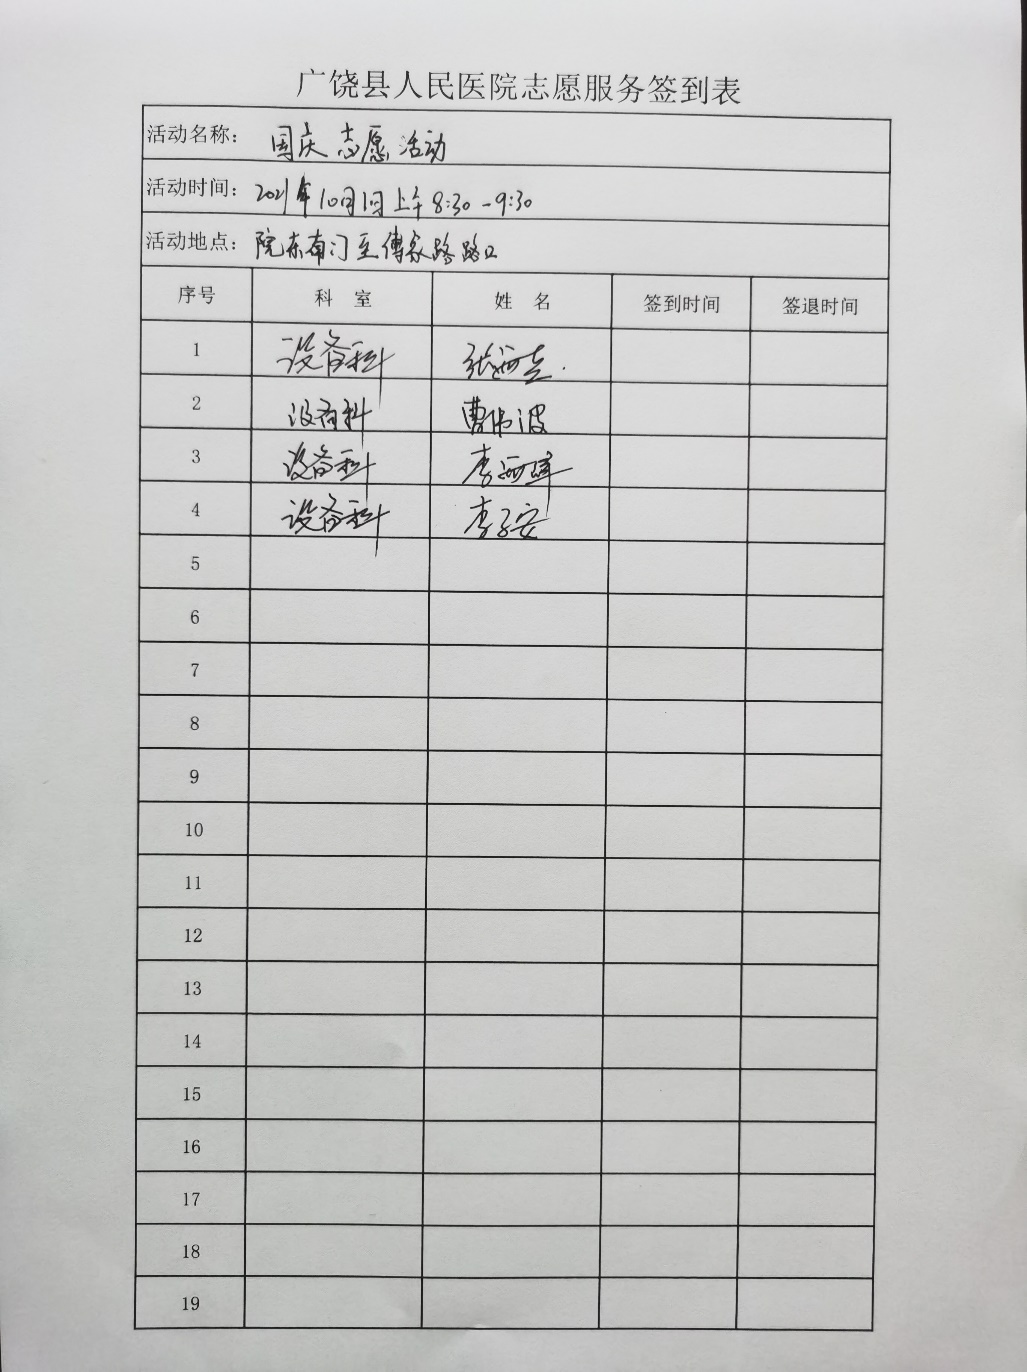 广饶县人民医院志愿服务签到表
活动名称： 国庆志愿活动
活动时间： 2021年10月1日上午8:30-9:30
活动地点： 院东南门至傅家路路口
序号 科 室 姓 名 签到时间 签退时间
1 设备科 张
2 设备科 曹伟波
3 设备科 李
4 设备科 李子安
5
6
7
8
9
10
11
12
13
14
15
16
17
18
19